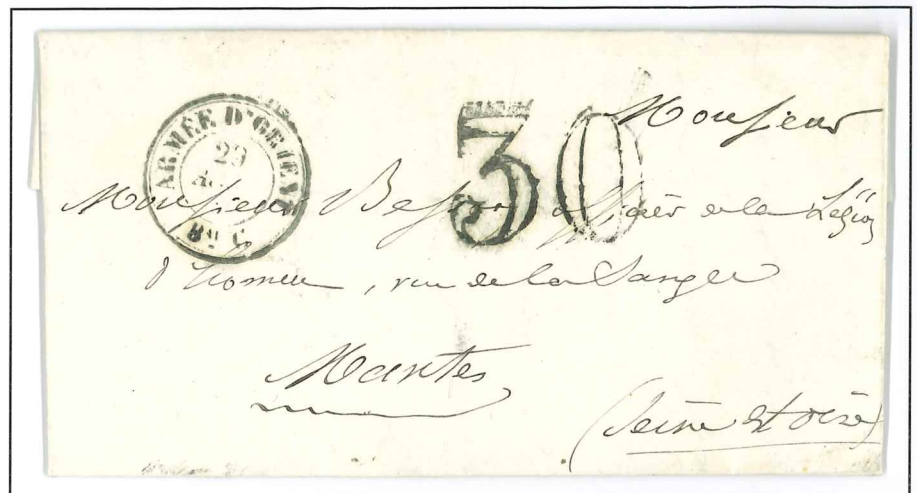 ARMÉE D'ORIENT
29
Bau C
30
Monsieur
Monsieur officier de la Légion
d'honneur, rue de la Sangle
Mantes
(Seine et oise)